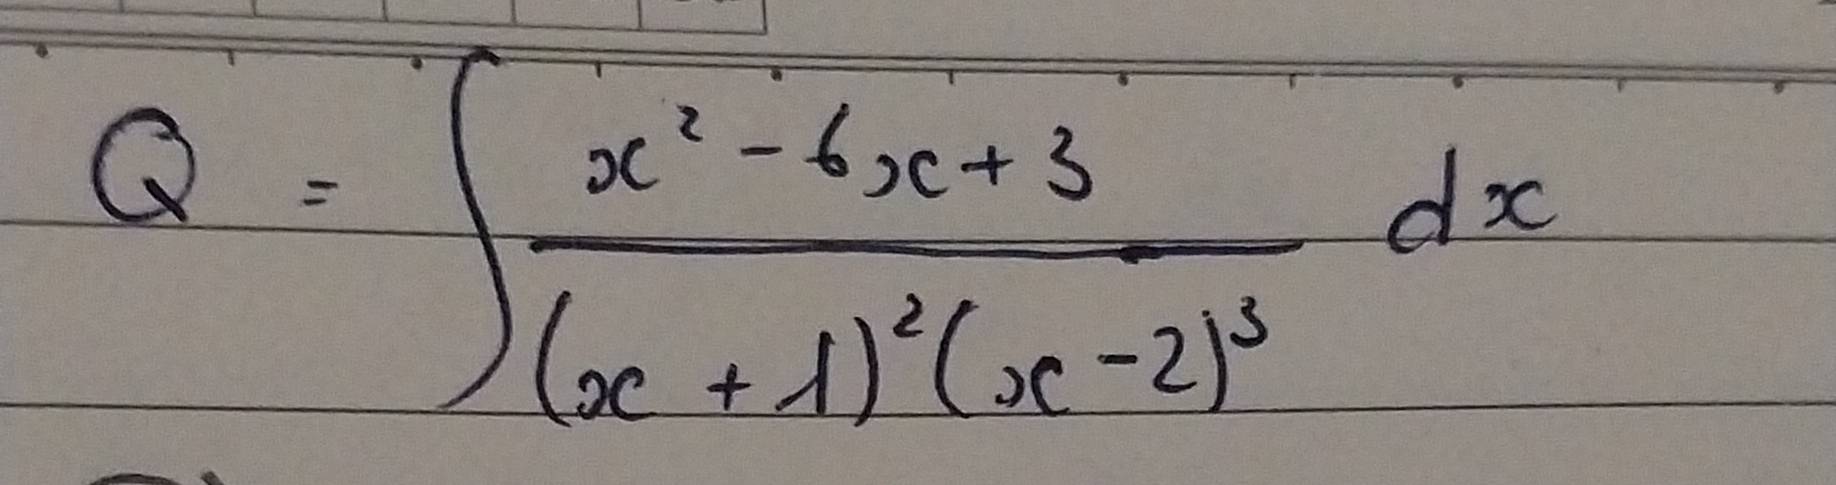 Q = ∫ (x² - 6x + 3) / ((x + 1)² (x - 2)³) dx